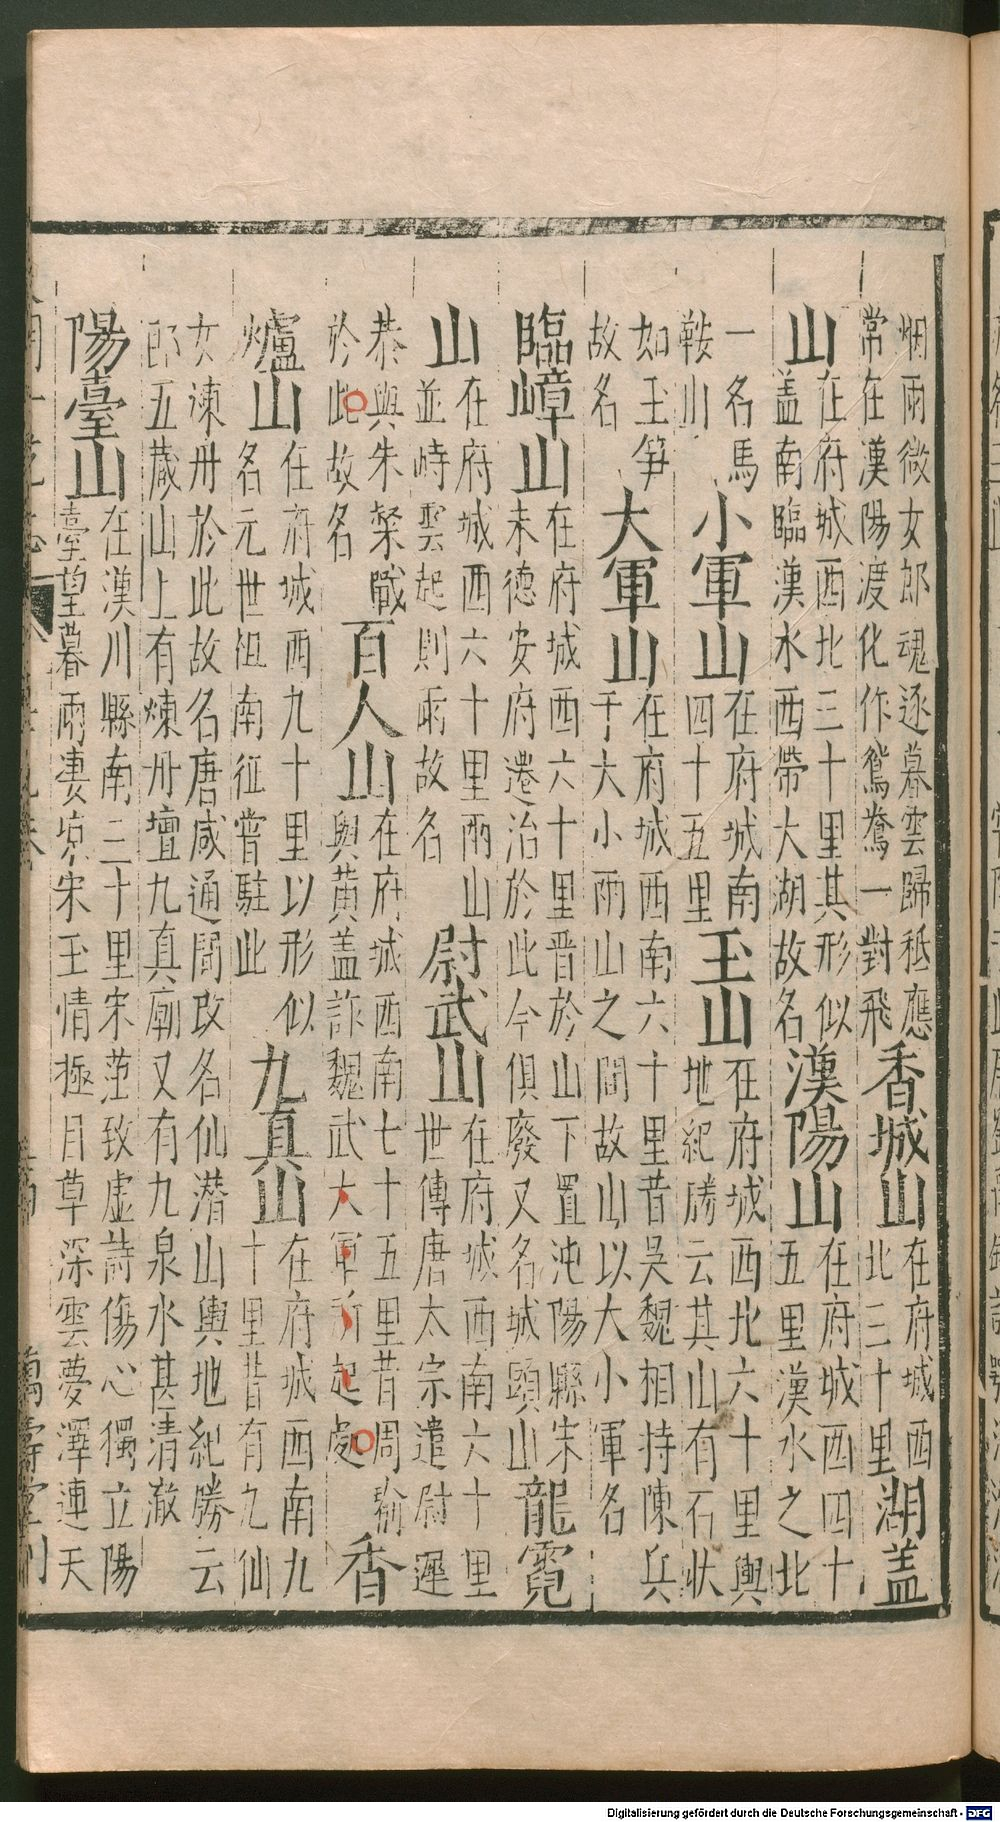 烟雨微女郎魂逐暮雲歸秪應
常在漢陽渡化作鴛鴦一對飛
香城山
在府城西
北三十里
湖盖
山
在府城西北三十里其形似
盖南臨漢水西帶大湖故名
漢陽山
在府城西四十
五里漢水之北
一名馬
鞍山
小軍山
在府城南
四十五里
玉山
在府城西北六十里輿
地紀勝云其山有石狀
如玉笋
故名
大軍山
在府城西南六十里昔吳魏相持陳兵
于大小兩山之間故山以大小軍名
臨嶂山
在府城西六十里晉於山下置沌陽縣宋
未德安府遷治於此今俱廢又名城頭山
龍霓
山
在府城西六十里兩山
並峙雲起則雨故名
尉武山
在府城西南六十里
世傳唐太宗遣尉遲
恭與朱粲戰
於此故名
百人山
在府城西南七十五里昔周瑜
與黃盖詐魏武大軍所起處
香
爐山
在府城西九十里以形似
名元世祖南征嘗駐此
九真山
在府城西南九
十里昔有九仙
女凍丹於此故名唐咸通間改名仙潛山輿地紀勝云
郎五藏山上有煉丹壇九真廟又有九泉水甚清澈
陽臺山
在漢川縣南二十里宋范致虛詩傷心獨立陽
臺望暮雨凄凉宋玉情極目草深雲夢澤連天
萬壽堂刊
Digitalisierung gefördert durch die Deutsche Forschungsgemeinschaft - DFG